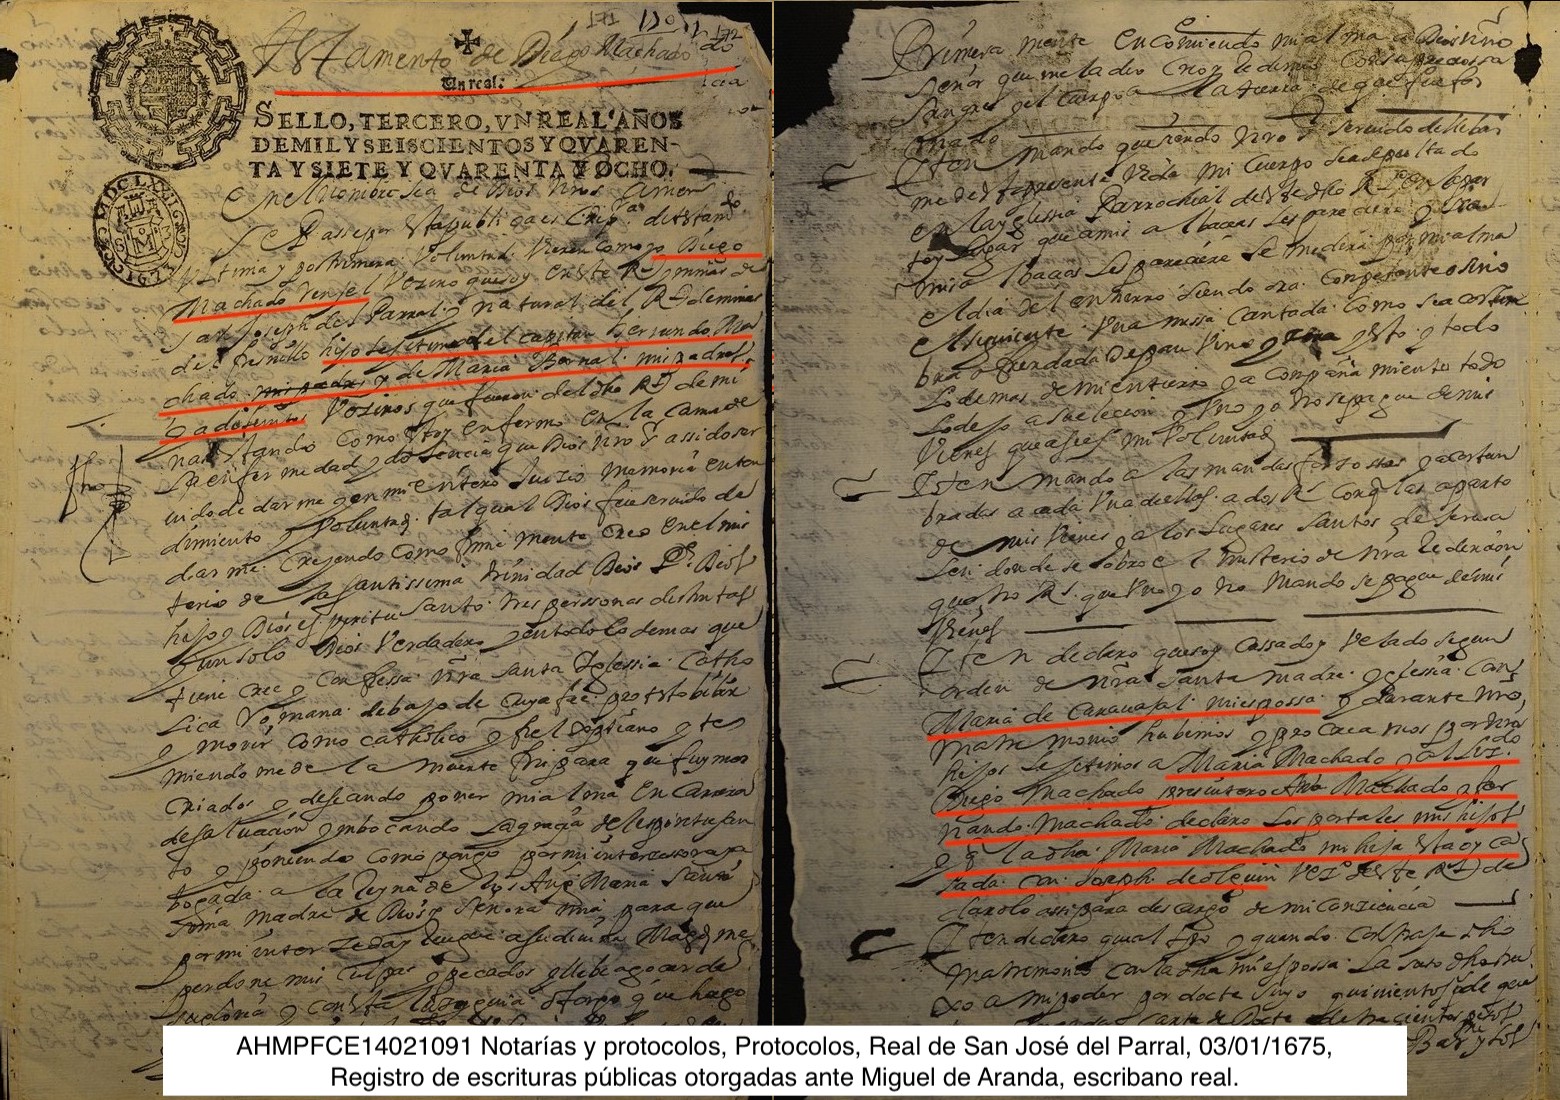 171 172
Testamento de Diego Machado
Un real.
SELLO, TERCERO, VN REAL, AÑOS
DE MIL Y SEISCIENTOS Y QVAREN-
TA Y SIETE Y QVARENTA Y OCHO.
En el Nombre sea de Dios nro s Amen
Sepasse por esta publica de testamto
Vltima y postrimera Voluntad Vieren como yo Diego
Machado Vezino que soy en este Rl y minas de
San Joseph del Parral y natural del Rl de minas
del Fresnillo hijo lejitimo del capitan Hernando Ma
chado mi padre y de Maria Bernal mi padres
ya difuntos Vezinos que fueron del dho Rl de mi
nas estando como estoy enfermo en la cama de
la enfermedad y dolencia que Dios nro sr assido ser
uido de darme y en mi entero Juizio memoria enten
dimiento y Voluntad tal qual Dios fue seruido de
darme Creyendo como firme mente creo en el mis
terio de la santissima trinidad Dios Pe Dios
hijo y Dios espiritu santo tres perssonas distintas
y un solo Dios Verdadero y en todo lo demas que
tiene cree y confiessa nra santa Yglessia Catho
lica Romana debajo de cuya fee protesto biuir
y morir como catholico y fiel xptiano y te
miendo me de la muerte
criados y deseando poner mi alma en carrera
de saluacion ynbocando la graçia del espiritu san
to y poniendo como pongo por mi intercesora y a
bogada a la Reyna de los Anges Maria Santi
sima madre de Dios y señora mia para que
por mi interzeda y ruegue a su diuina Magd me
perdone mis culpas y pecados y lleue a gozar de
su gloria y con esta otorgo que hago
Primera mente encomiendo mi alma a Dios nro
señor que me la dio crio y redimio con su preciossa
sangre y el cuerpo a la tierra de que fue for
mado
Yten mando que quando Dios nro sr seruido de lleuar
me desta presente Vida mi cuerpo sea sepultado
en la yglessia Parrochial deste dho Rl en la par
te y lugar que a mis albaceas les pareciere y
a mis albaceas les pareciere se me diga por mi alma
el dia del entierro siendo ora competente o sino
el siguiente Vna missa cantada como sea costum
bre ofrendada de pan Vino y çera y esto y todo
lo demas de mi entierro y acompañamiento todo
lo dejo a su eleccion y Vno y otro se pague de mis
Vienes que assi es mi Voluntad
Yten mando a las mandas forzossas y acostum
bradas a cada Vna dellas a dos Rs con q las aparto
de mis Vienes y a los lugares santos de Jerusa
len donde se obro el misterio de nra redencion
quatro Rs que Vno y otro mando se pague de mis
Vienes
Yten declaro que soy cassado y Velado segun
orden de nra santa madre yglessia con
Maria de Carauajal mi espossa y durante nro
matrimonio hubimos y procreamos por nros
hijos lejitimos a Maria Machado y al Lizdo
Diego Machado presuitero Ana Machado y fer
nando Machado declaro los por tales mis hijos
y q la dha Maria Machado mi hija esta oy ca
sada con Joseph de olguin Vezo deste Rl de
clarolo assi para descargo de mi conziencia
Yten declaro que al tpo y quando contraje dho
matrimonio con la dha mi espossa la susodha tru
xo a mi poder por dote suyo quinientos de que
carta de Dote de trecientos pesos
AHMPFCE14021091 Notarías y protocolos, Protocolos, Real de San José del Parral, 03/01/1675,
Registro de escrituras públicas otorgadas ante Miguel de Aranda, escribano real.